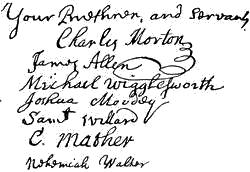 Your Brethren, and Servants,
Charles Morton
James Allen
Michael Wigglesworth
Joshua Moodey
Samll Willard
C. Mather
Nehemiah Walter